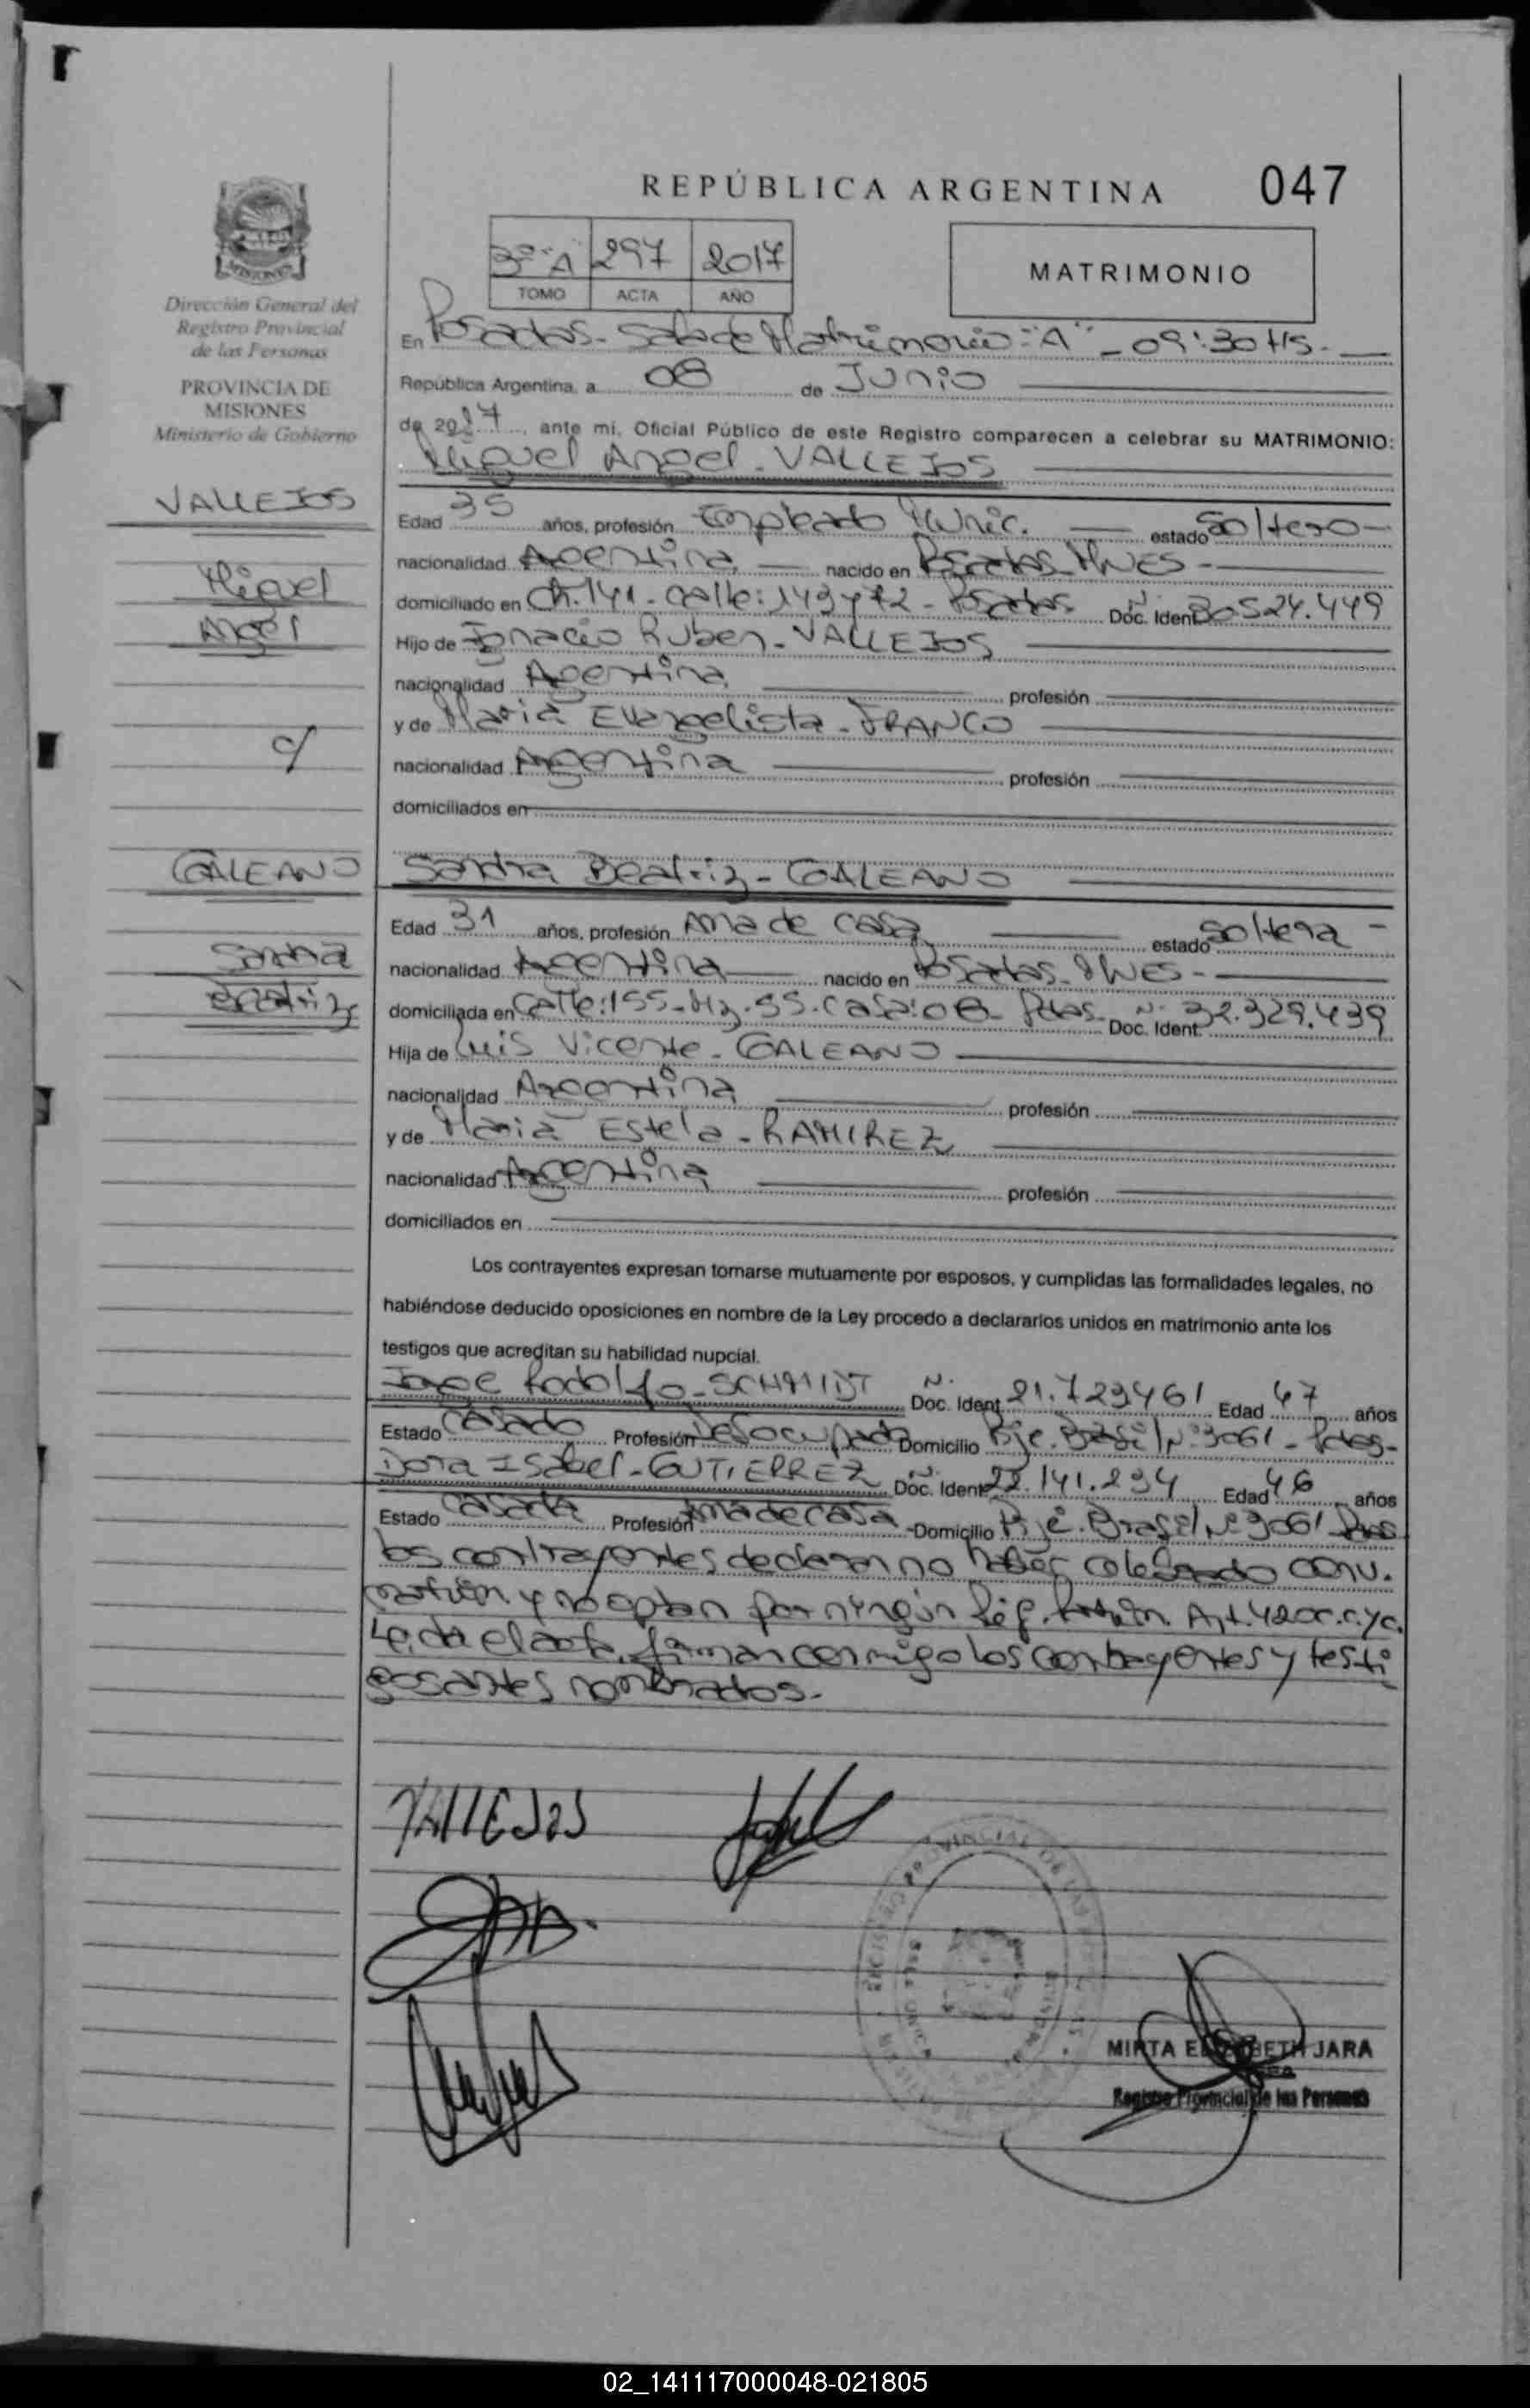 REPÚBLICA ARGENTINA 047
3º "A" 297 2017
TOMO ACTA AÑO
MATRIMONIO
MISIONES
Dirección General del
Registro Provincial
de las Personas
PROVINCIA DE
MISIONES
Ministerio de Gobierno
En Posadas - Sala de Matrimonio "A" - 09:30 HS.
República Argentina, a 08 de Junio
de 2017, ante mí, Oficial Público de este Registro comparecen a celebrar su MATRIMONIO:
Miguel Angel - VALLEJOS
VALLEJOS
Miguel
Angel
c/
GALEANO
Sandra
Beatriz
Edad 35 años, profesión Empleado Munic. estado Soltero -
nacionalidad Argentina nacido en Posadas - MNES -
domiciliado en Ch. 141 - calle: 149 y 72 - Posadas Doc. Ident. Nº 30.524.449
Hijo de Ignacio Ruben - VALLEJOS
nacionalidad Argentina profesión
y de Maria Evangelista - FRANCO
nacionalidad Argentina profesión
domiciliados en
Sandra Beatriz - GALEANO
Edad 31 años, profesión Ama de casa estado Soltera -
nacionalidad Argentina nacido en Posadas - MNES -
domiciliada en Calle: 155 - Mz. 55 - casa: 08 - Pdas. Doc. Ident. Nº 32.329.439
Hija de Luis Vicente - GALEANO
nacionalidad Argentina profesión
y de Maria Estela - RAMIREZ
nacionalidad Argentina profesión
domiciliados en
Los contrayentes expresan tomarse mutuamente por esposos, y cumplidas las formalidades legales, no
habiéndose deducido oposiciones en nombre de la Ley procedo a declararlos unidos en matrimonio ante los
testigos que acreditan su habilidad nupcial.
Jorge Rodolfo - SCHMIDT Doc. Ident. Nº 21.723.461 Edad 47 años
Estado Casado Profesión Desocupado Domicilio Pje. Brasil Nº 3061 - Pdas -
Dora Isabel - GUTIERREZ Doc. Ident. Nº 22.141.234 Edad 46 años
Estado Casada Profesión Ama de casa Domicilio Pje. Brasil Nº 3061 Pdas
los contrayentes declaran no haber celebrado conv.
matrim y no optan por ningún Rég. Art. 420 C.C. y C.
Leida el acta, firman conmigo los contrayentes y testi
gos antes nombrados.
VALLEJOS
MIRTA ELIZABETH JARA
Registro Provincial de las Personas
02_141117000048-021805